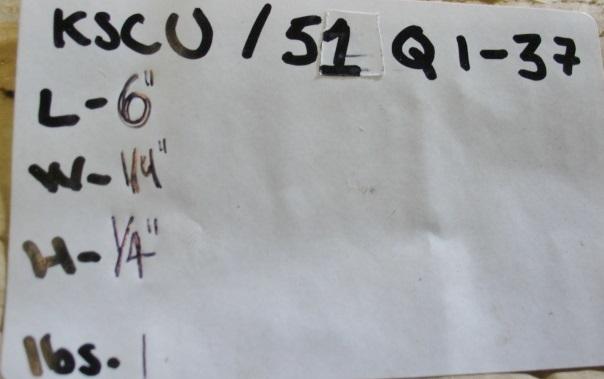 KSCU / 51 Q 1-37
L-6"
W-1/4"
H-1/4"
lbs. 1